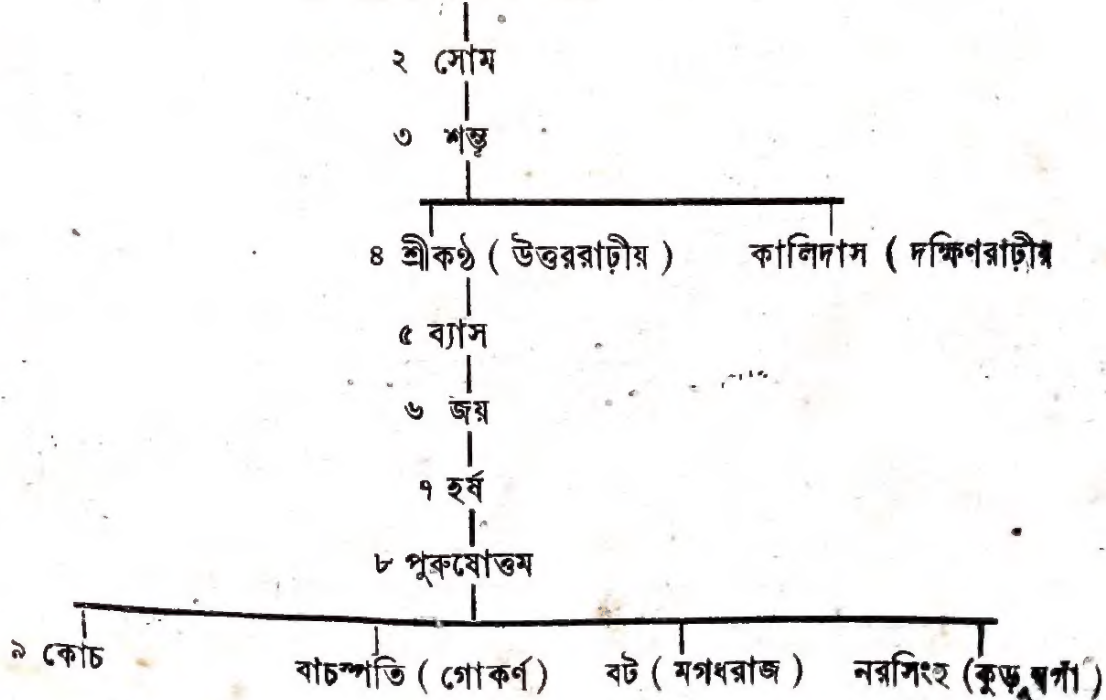 ২ সোম
৩ শম্ভু
৪ শ্রীকণ্ঠ ( উত্তররাঢ়ীয় ) কালিদাস ( দক্ষিণরাঢ়ীয়
৫ ব্যাস
৬ জয়
৭ হর্ষ
৮ পুরুষোত্তম
৯ কোচ বাচস্পতি ( গোকর্ণ ) বট ( মগধরাজ ) নরসিংহ